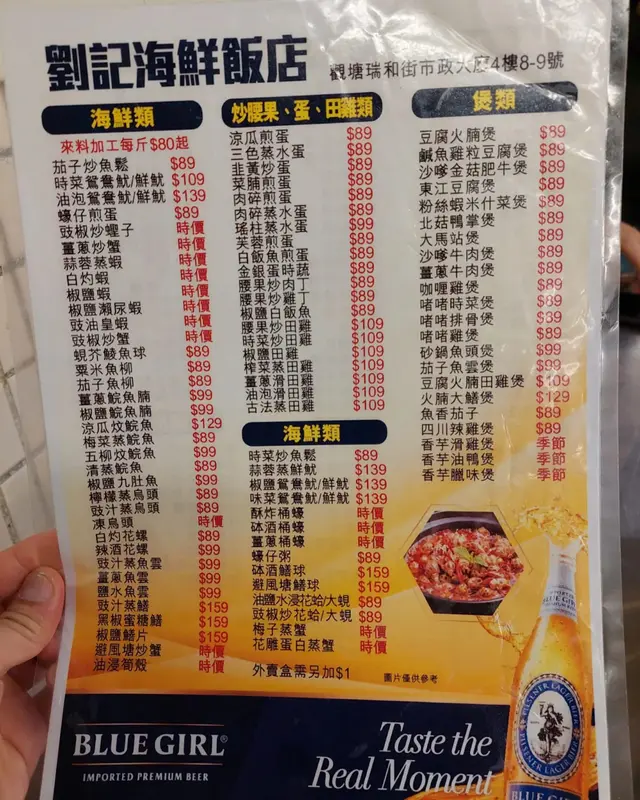 劉記海鮮飯店
觀塘瑞和街市政大廈4樓8-9號
海鮮類
來料加工每斤$80起
茄子炒魚鬆 $89
時菜鴛鴦魷/鮮魷 $109
油泡鴛鴦魷/鮮魷 $139
蠔仔煎蛋 $89
豉椒炒蟶子 時價
薑蔥炒蟹 時價
蒜蓉蒸蝦 時價
白灼蝦 時價
椒鹽蝦 時價
椒鹽瀨尿蝦 時價
豉油皇蝦 時價
豉椒炒蟹 時價
蜆芥鯪魚球 $89
粟米魚柳 $89
茄子魚柳 $89
薑蔥鯇魚腩 $99
椒鹽鯇魚腩 $99
涼瓜炆鯇魚 $129
梅菜蒸鯇魚 $89
五柳炆鯇魚 $99
清蒸鯇魚 $89
椒鹽九肚魚 $99
檸檬蒸烏頭 $89
豉汁蒸烏頭 $89
凍烏頭 時價
白灼花螺 $89
辣酒花螺 $99
豉汁蒸魚雲 $99
薑蔥魚雲 $99
鹽水魚雲 $99
豉汁蒸鱔 $159
黑椒蜜糖鱔 $159
椒鹽鱔片 $159
避風塘炒蟹 時價
油浸筍殼 時價
炒腰果、蛋、田雞類
涼瓜煎蛋 $89
三色蒸水蛋 $89
韭黃炒蛋 $89
菜脯煎蛋 $89
肉碎煎蛋 $89
肉碎蒸水蛋 $89
瑤柱蒸水蛋 $99
芙蓉煎蛋 $89
白飯魚煎蛋 $89
金銀蛋時蔬 $89
腰果炒肉丁 $89
腰果炒雞丁 $89
椒鹽白飯魚 $89
腰果炒田雞 $109
時菜炒田雞 $109
椒鹽田雞 $109
榨菜蒸田雞 $109
薑蔥滑田雞 $109
油泡滑田雞 $109
古法蒸田雞 $109
海鮮類
時菜炒魚鬆 $89
蒜蓉蒸鮮魷 $139
椒鹽鴛鴦魷/鮮魷 $139
味菜鴛鴦魷/鮮魷 $139
酥炸桶蠔 時價
砵酒桶蠔 時價
薑蔥桶蠔 時價
蠔仔粥 $89
砵酒鱔球 $159
避風塘鱔球 $159
油鹽水浸花蛤/大蜆 $89
豉椒炒花蛤/大蜆 $89
梅子蒸蟹 時價
花雕蛋白蒸蟹 時價
外賣盒需另加$1
煲類
豆腐火腩煲 $89
鹹魚雞粒豆腐煲 $89
沙嗲金菇肥牛煲 $89
東江豆腐煲 $89
粉絲蝦米什菜煲 $89
北菇鴨掌煲 $89
大馬站煲 $89
沙嗲牛肉煲 $89
薑蔥牛肉煲 $89
咖喱雞煲 $89
啫啫時菜煲 $89
啫啫排骨煲 $39
啫啫雞煲 $89
砂鍋魚頭煲 $99
茄子魚雲煲 $99
豆腐火腩田雞煲 $109
火腩大鱔煲 $129
魚香茄子 $89
四川辣雞煲 $89
香芋滑雞煲 季節
香芋油鴨煲 季節
香芋臘味煲 季節
圖片僅供參考
BLUE GIRL®
IMPORTED PREMIUM BEER
Taste the
Real Moment
BLUE GIRL
PILSENER LAGER BEER
BLUE GIRL